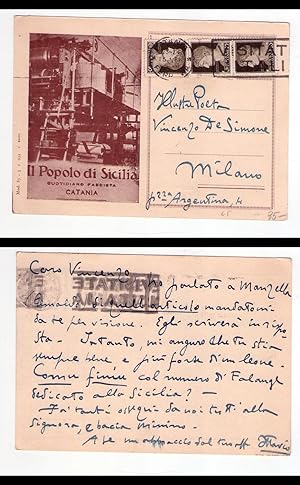 VISITATE
Il Popolo di Sicilia
QUOTIDIANO FASCISTA
CATANIA
Illustre Poeta
Vincenzo De Simone
Milano
p.zza Argentina, 4
85.-
Caro Vincenzo, ho parlato a Manzella
da te per visione. Egli scriverà in rispo
sta. Intanto, mi auguro che tu stia
sempre bene e più forte di un leone.
Come finiu col numero di Falange
dedicato alla Sicilia?
Fa' tanti ossequi da noi tutti alla
Signora, e bacia Mimmo.
A te un abbraccio dal tuo aff.